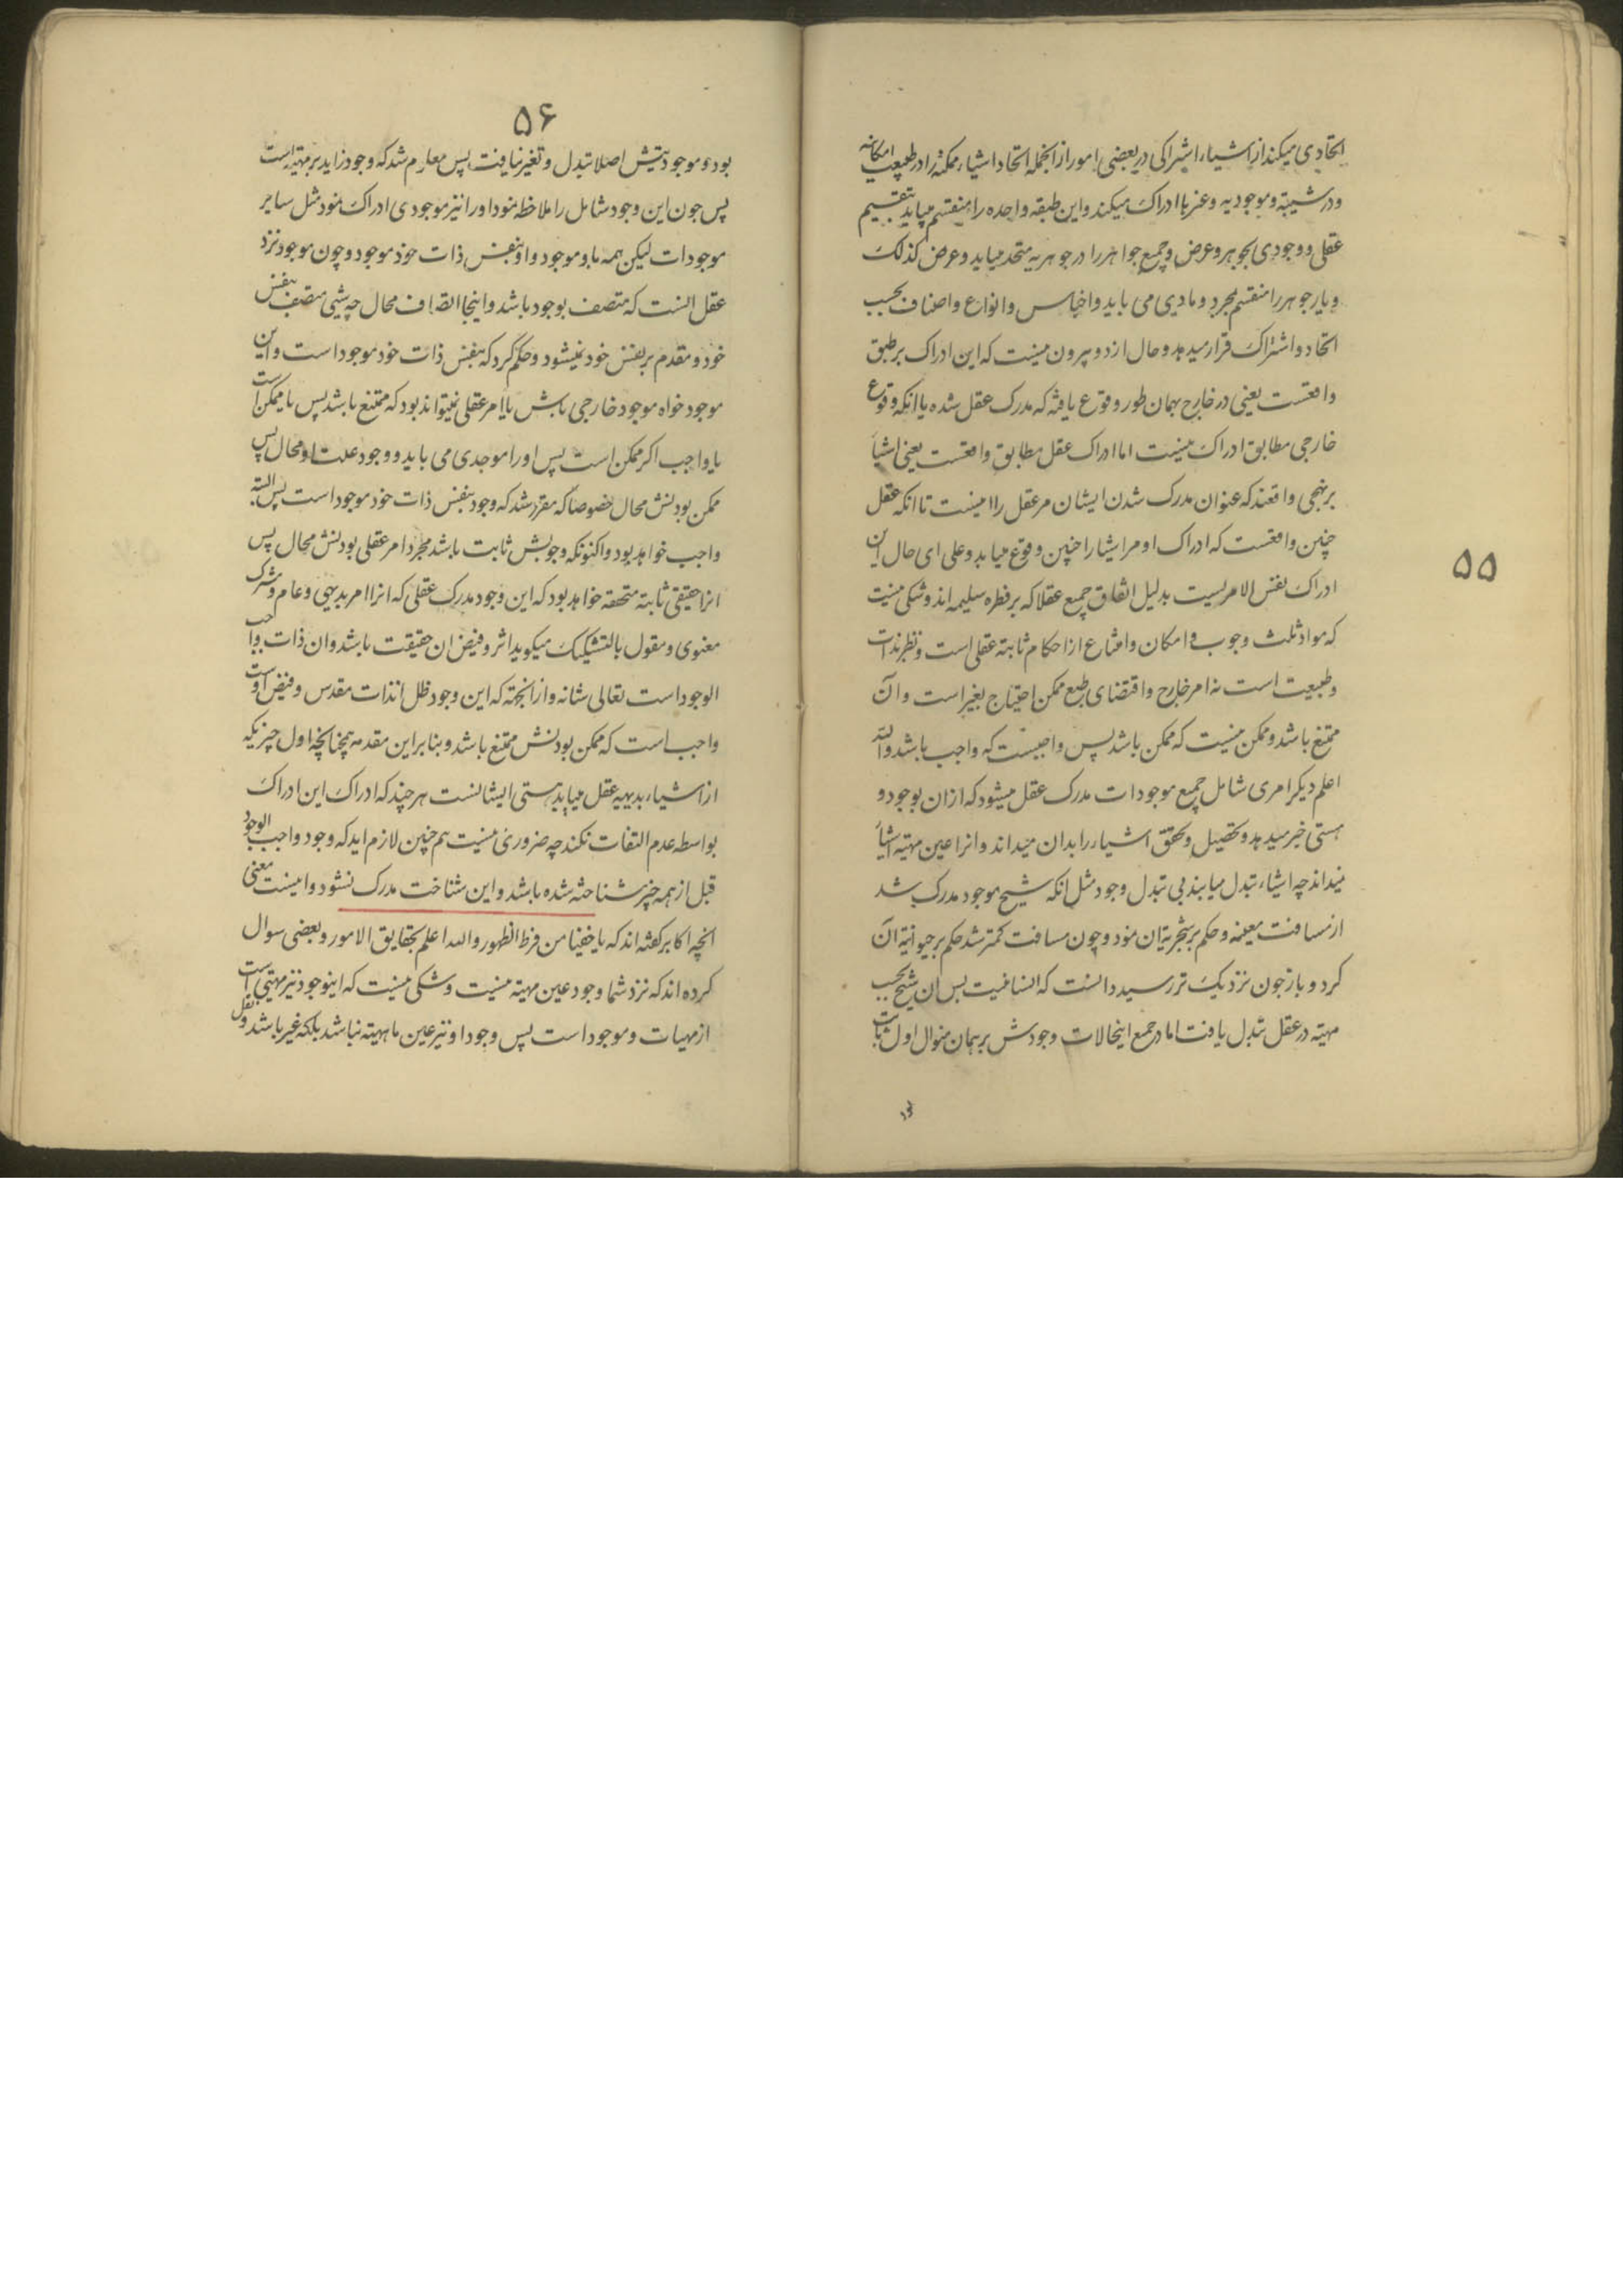 ۵۵
اتحادی میکند از اشیاء اشراکی در بعضی امور از انجمله اتحاد اشیاء ممکنه را در طبیعت امکانیه
و در شیئیه و موجودیه و غیرها ادراک میکند و این طبقه واحده را منقسم میابد بتقسیم
عقلی و وجودی بجوهر و عرض و جمیع جواهر را در جوهریه متحد میابد و عرض کذلک
و باز جوهر را منقسم بمجرد و مادی می یابد و اجناس و انواع و اصناف بحسب
اتحاد و اشتراک قرار میدهد و حال از دو بیرون نیست که این ادراک بر طبق
واقعست یعنی در خارج بهمان طور وقوع یافته که مدرک عقل شده یا انکه وقوع
خارجی مطابق ادراک نیست اما ادراک عقل مطابق واقعست یعنی اشیأ
بر نهجی واقعند که عنوان مدرک شدن ایشان مر عقل را نیست تا انکه عقل
چنین واقعست که ادراک او مر ایشانرا چنین وقوع میابد و علی ای حال این
ادراک نفس الامریست بدلیل اتفاق جمیع عقلا که بر فطره سلیمه اند و شکی نیست
که مواد ثلث وجوب و امکان و امتناع از احکام ثابته عقلی است و نظر بذات
و طبیعت است نه امر خارج و اقتضای طبع ممکن احتیاج بغیر است و آن
ممتنع باشد و ممکن نیست که ممکن باشد پس واجبست که واجب باشد والله
اعلم دیگر امری شامل جمیع موجودات مدرک عقل میشود که از ان بوجود و
هستی خبر میدهد و تحصیل و تحقق اشیاء را بدان میداند و انرا عین مهیته اشیأ
نمیداند چه اشیاء تبدل میابند بی تبدل وجود مثل انکه شبح موجود مدرک شد
از مسافت معینه و حکم بر شجریة ان نمود و چون مسافت کمتر شد حکم بر حیوانیة آن
کرد و باز چون نزدیک تر رسید دانست که انسانیت پس ان شبح بحسب
مهیته در عقل تبدل یافت اما در جمیع اینحالات وجودش بر همان منوال اول ثابت
۵۶
بود و موجودیتش اصلا تبدل و تغیر نیافت پس معلوم شد که وجود زاید بر مهیته است
پس چون این وجود شامل را ملاحظه نمود اورا نیز موجودی ادراک نمود مثل سایر
موجودات لیکن همه باو موجود و او بنفس ذات خود موجود و چون موجود نزد
عقل انست که متصف بوجود باشد و اینجا اتصاف محال چه شیی متصف بنفس
خود و مقدم بر نفس خود نمیشود و حکم کرد که بنفس ذات خود موجود است و این
موجود خواه موجود خارجی باش یا امر عقلی نمیتواند بود که ممتنع باشد پس یا ممکن است
یا واجب اگر ممکن است پس اورا موجدی می باید و وجود علت او محال پس
ممکن بودنش محال خصوصا که مقرر شد که وجود بنفس ذات خود موجود است پس البته
واجب خواهد بود و اکنونکه وجوبش ثابت باشد مجرد امر عقلی بودنش محال پس
انرا حقیقتی ثابته متحققه خواهد بود که این وجود مدرک عقلی که انرا امر بدیهی و عام و مشترک
معنوی و مقول بالتشکیک میگوید اثر و فیض ان حقیقت باشد و ان ذات واجب
الوجود است تعالی شانه و از انجهة که این وجود ظل انذات مقدس و فیض اوست
واجب است که ممکن بودنش ممتنع باشد و بنا بر این مقدمه همچنانچه اول چیزیکه
از اشیاء بدیهیه عقل میابد هستی ایشانست هر چند که ادراک این ادراک
بواسطه عدم التفات نکند چه ضروری نیست هم چنین لازم اید که وجود واجب الوجود
قبل از همه چیز شناخته شده باشد و این شناخت مدرک نشود و اینست معنی
انچه اکابر گفته اند که یا خفیا من فرط الظهور والله اعلم بحقایق الامور و بعضی سوال
کرده اند که نزد شما وجود عین مهیته نیست و شکی نیست که اینوجود نیز مهیتی است
از مهیات و موجود است پس وجود او نیز عین ماهیته نباشد بلکه غیر باشد و نقل